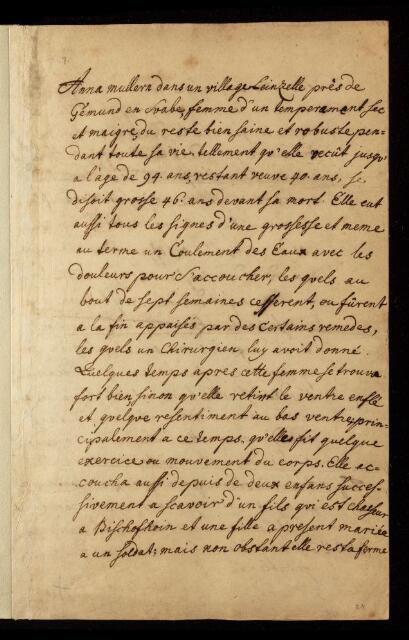 Anna mullern dans un village Leinzelle près de
Gemund en Svabe, femme d'un temperament sec
et maigre, du reste bien saine et robuste pen-
dant toute sa vie, tellement qu'elle vecût jusqu'
a l'âge de 94. ans, restant veuve 40. ans, se
disoit grosse 46. ans devant sa mort. Elle eut
aussi tous les signes d'une grossesse et meme
au terme un Coulement des Eaux avec les
douleurs pour s'accoucher, les quels au
bout de sept semaines cesserent, ou fûrent
a la fin appaisés par des Certains remedes,
les quels un Chirurgien luy avoit donné.
Quelques temps apres cette femme se trouva
fort bien sinon qu'elle retint le ventre enflé
et quelque resentiment au bas ventre, prin-
cipalement a ce temps, qu'elle fit quelque
exercice ou mouvement du corps. Elle ac-
coucha aussi depuis de deux enfans succes-
sivement a scavoir d'un fils qui est chasseur
a et une fille a present mariée
a un soldat; mais non obstant elle resta ferme